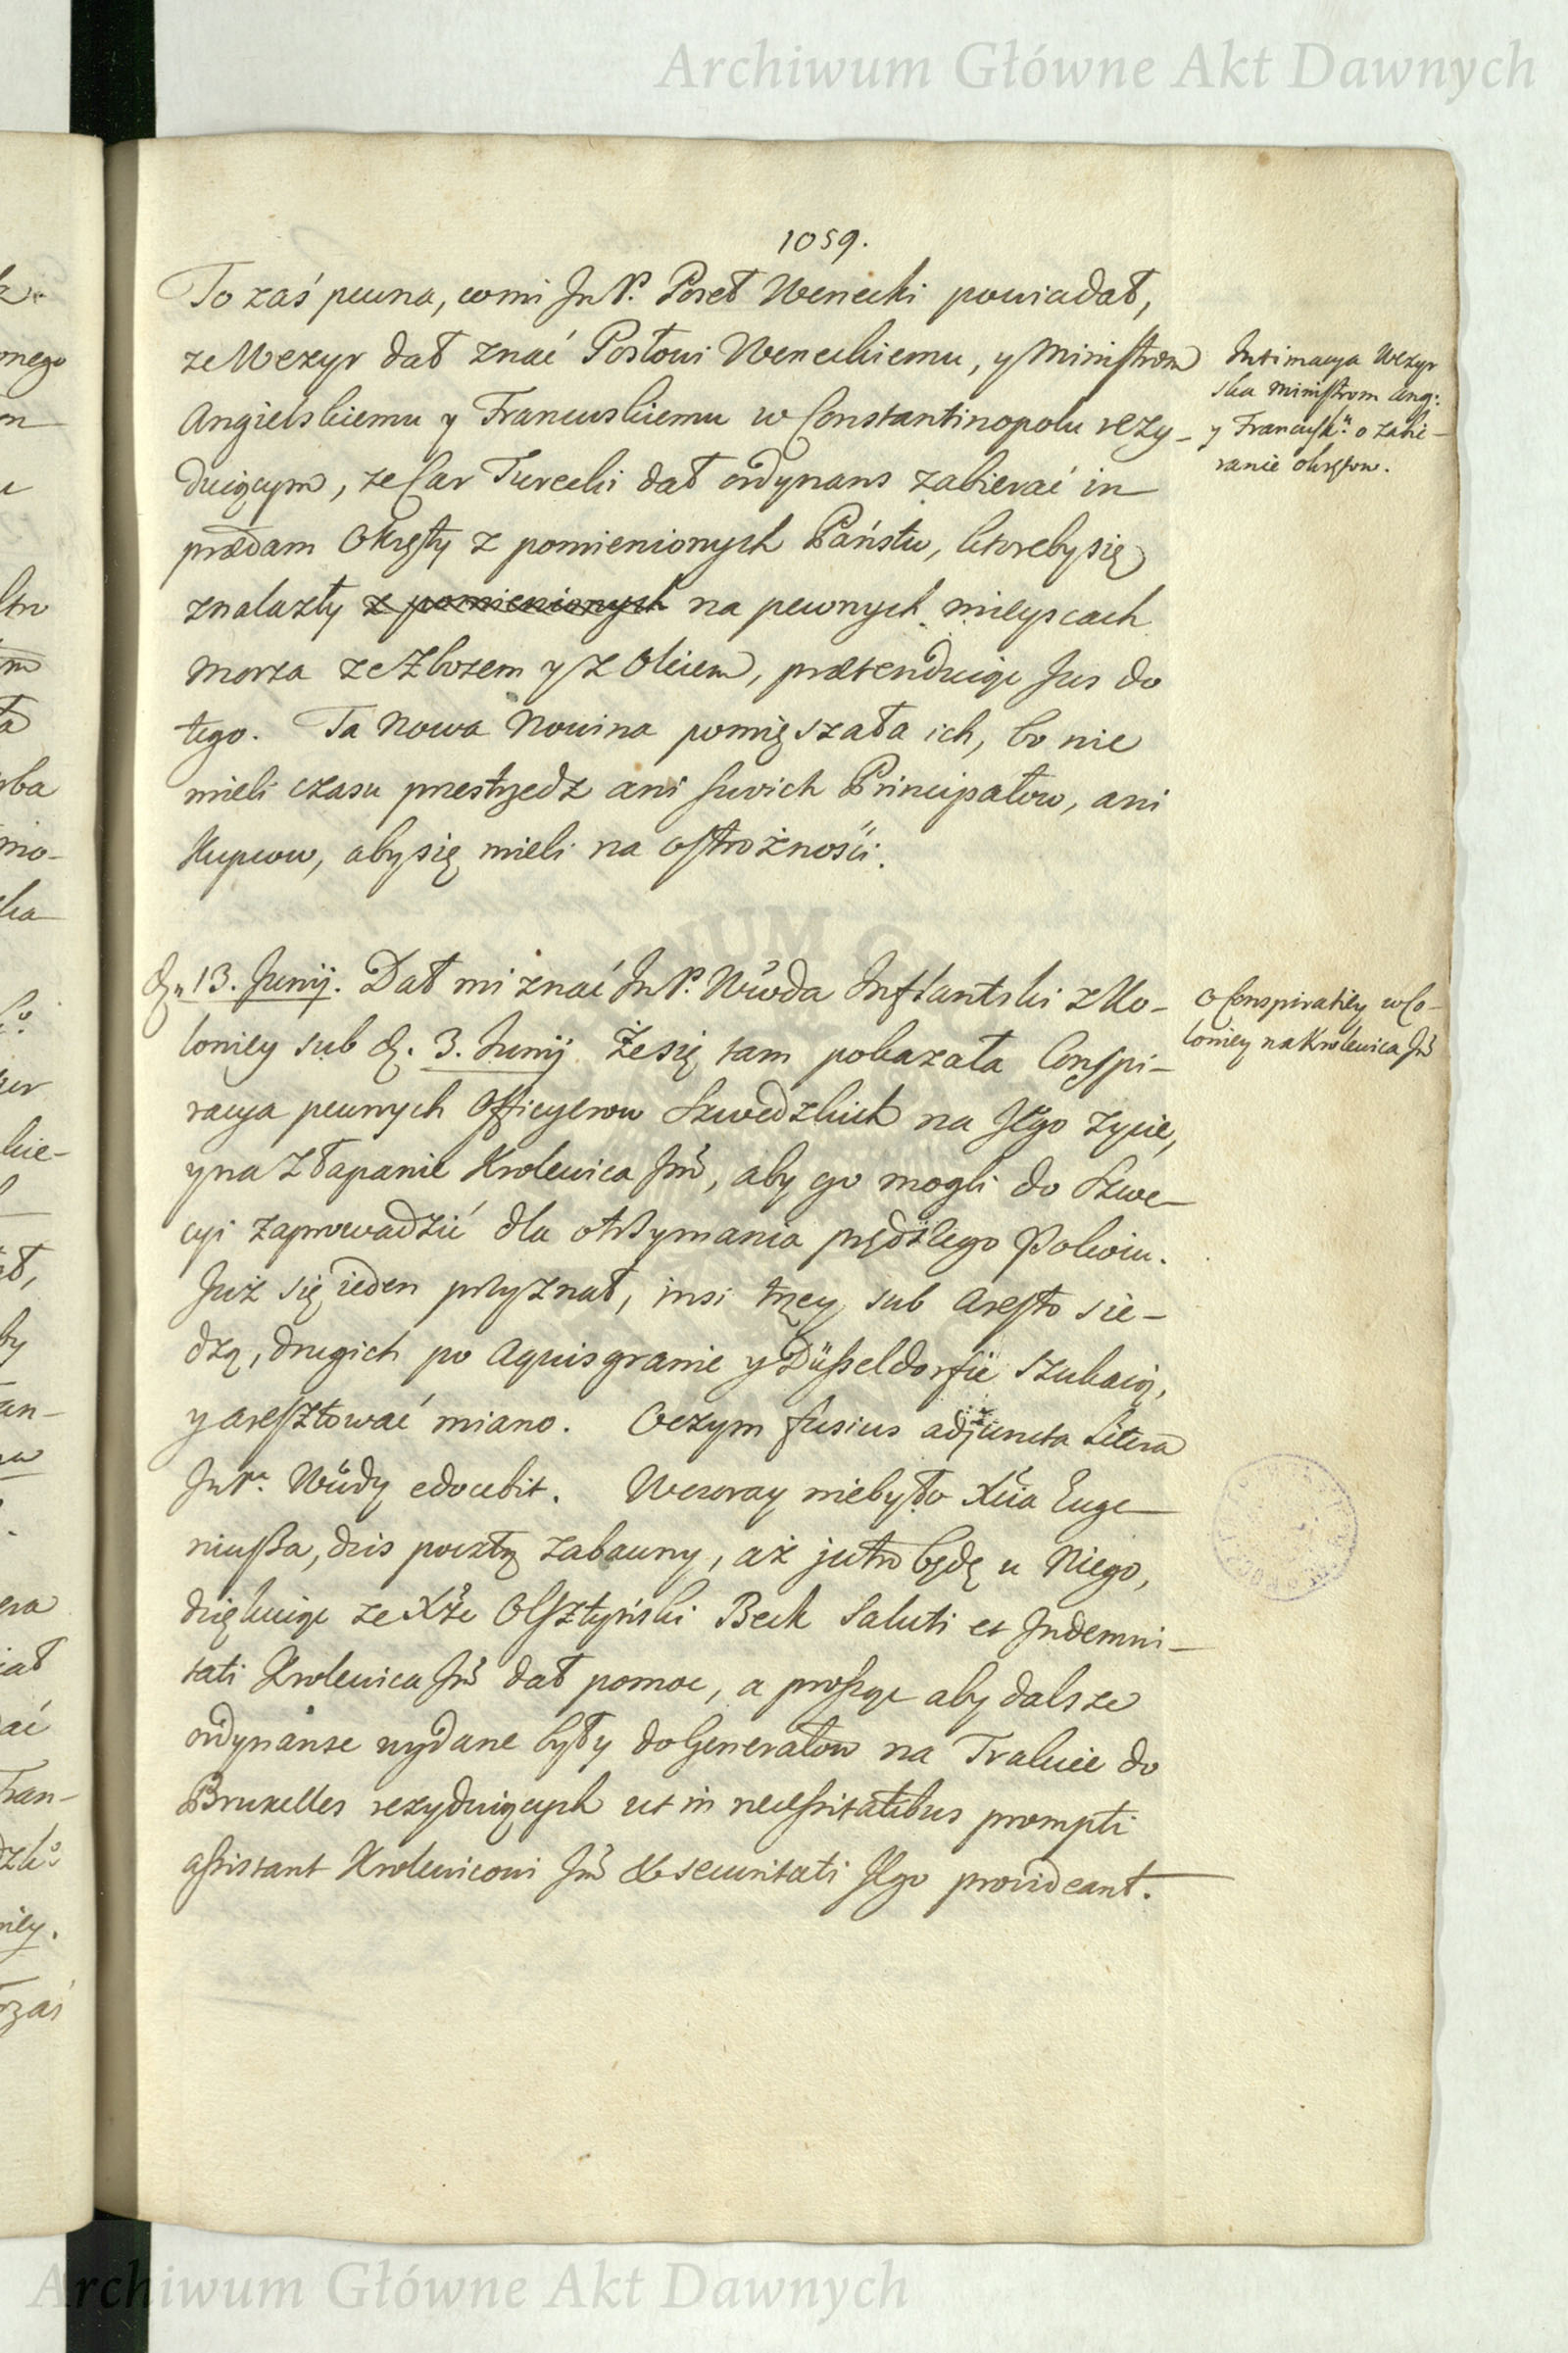 Archiwum Główne Akt Dawnych
1059.
To zaś pewna, co mi JmP. Poseł Wenecki powiadał,
ze Wezyr dał znać Posłowi Weneckiemu, y Ministrom
Angielskiemu y Francuskiemu w Constantinopolu rezy-
duiącym, ze Car Turecki dał ordynans zabierać in
prædam Okręty z pomienionych Państw, ktoreby się
znalazły z pomienionych na pewnych mieyscach
Morza ze Zbozem y z Oleiem, prætenduiąc Jus do
tego. Ta Nowa Nowina pomięszała ich, bo nie
mieli czasu przestrzedz ani swoich Principałow, ani
Kupcow, aby się mieli na ostrożności.
Intimacya Wezyr
ska Ministrom Ang:
y Francusk: o zabie-
ranie okrętow.
d. 13. Junij. Dał mi znać JmP. Wwoda Inflantski z Ko-
loniey sub d. 3. Junij Że się tam pokazała Conspi-
racya pewnych Officyerow Szwedzkich na Jego zycie,
y na Złapanie Krolewica Jm̃, aby go mogli do Szwe-
cyi zaprowadzić dla otrzymania prędszego Pokoiu.
Już się ieden przyznał, insi trzey sub Aresto sie-
dzą, drugich po Aquisgranie y Düsseldorfie szukaią,
y aresztować miano. O czym fusius adjuncta Litera
JmPa. Wwdy edocebit. Wczoray niebyło Xcia Euge-
niusza, dzis pocztą zabawny, aż jutro będę u Niego,
dziękuiąc ze Xże Olsztyński Beck Saluti et Indemni-
tati Krolewica Jm̃ dał pomoc, a prosząc aby dalsze
ordynanse wydane były do Generałow na Trakcie do
Bruxelles rezyduiących ut in necessitatibus prompti
assistant Krolewicowi Jm̃ & securitati Jego provideant.
O Conspiratiey w Co-
loniey na Krolewica Jm̃
Archiwum Główne Akt Dawnych